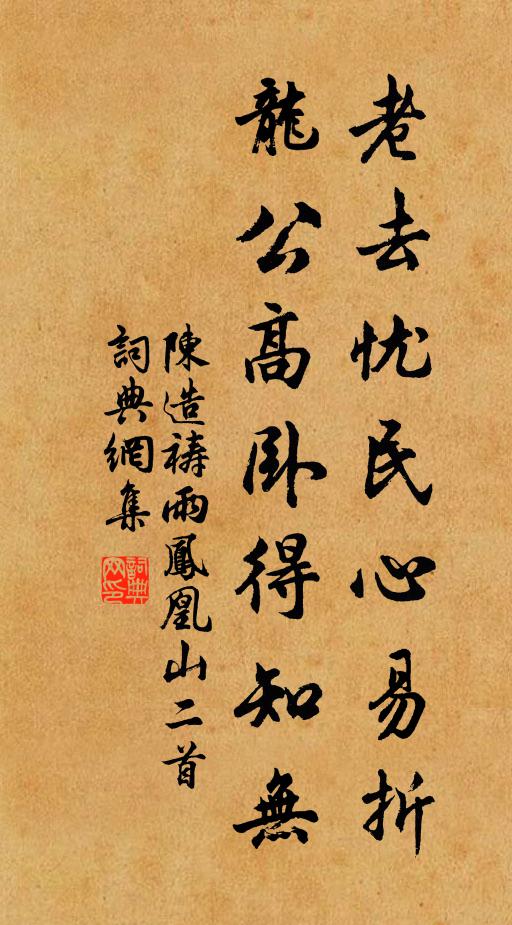 老去忧民心易折
龍公高卧得知無
陳造禱雨鳳凰山二首
詞典網集
詞典
网印